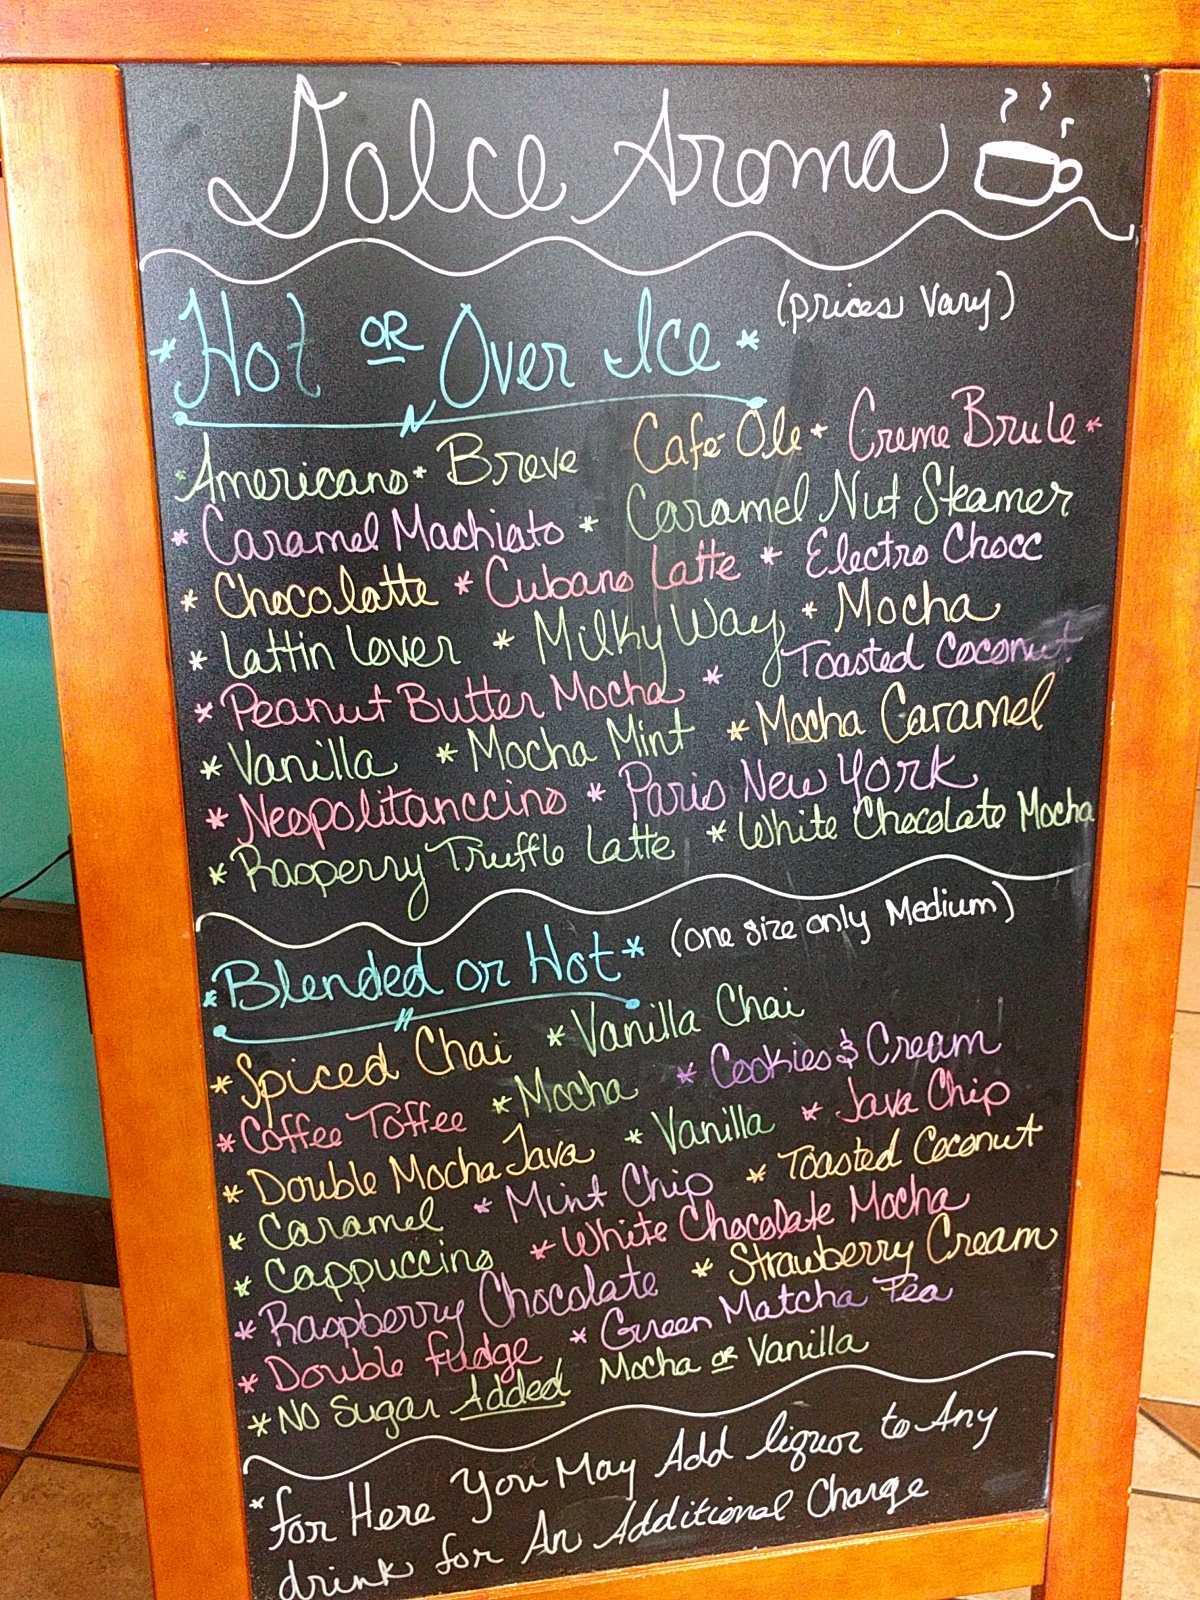 Dolce Aroma
*Hot OR Over Ice* (prices vary)
*Americano* Breve Cafe Ole* Creme Brule*
*Caramel Machiato * Caramel Nut Steamer
*Chocolatte *Cubano Latte * Electro Chocc
*Lattin Lover *Milky Way *Mocha
*Peanut Butter Mocha * Toasted Coconut
*Vanilla *Mocha Mint *Mocha Caramel
*Neopolitanccino * Paris New York
*Rasperry Truffle Latte *White Chocolate Mocha
*Blended or Hot* (one size only Medium)
*Spiced Chai *Vanilla Chai
*Coffee Toffee *Mocha *Cookies & Cream
*Double Mocha Java *Vanilla *Java Chip
*Caramel *Mint Chip *Toasted Coconut
*Cappuccino *White Chocolate Mocha
*Raspberry Chocolate *Strawberry Cream
*Double Fudge *Green Matcha Tea
*No Sugar Added Mocha or Vanilla
*For Here You May Add liquor to Any
drink for An Additional Charge